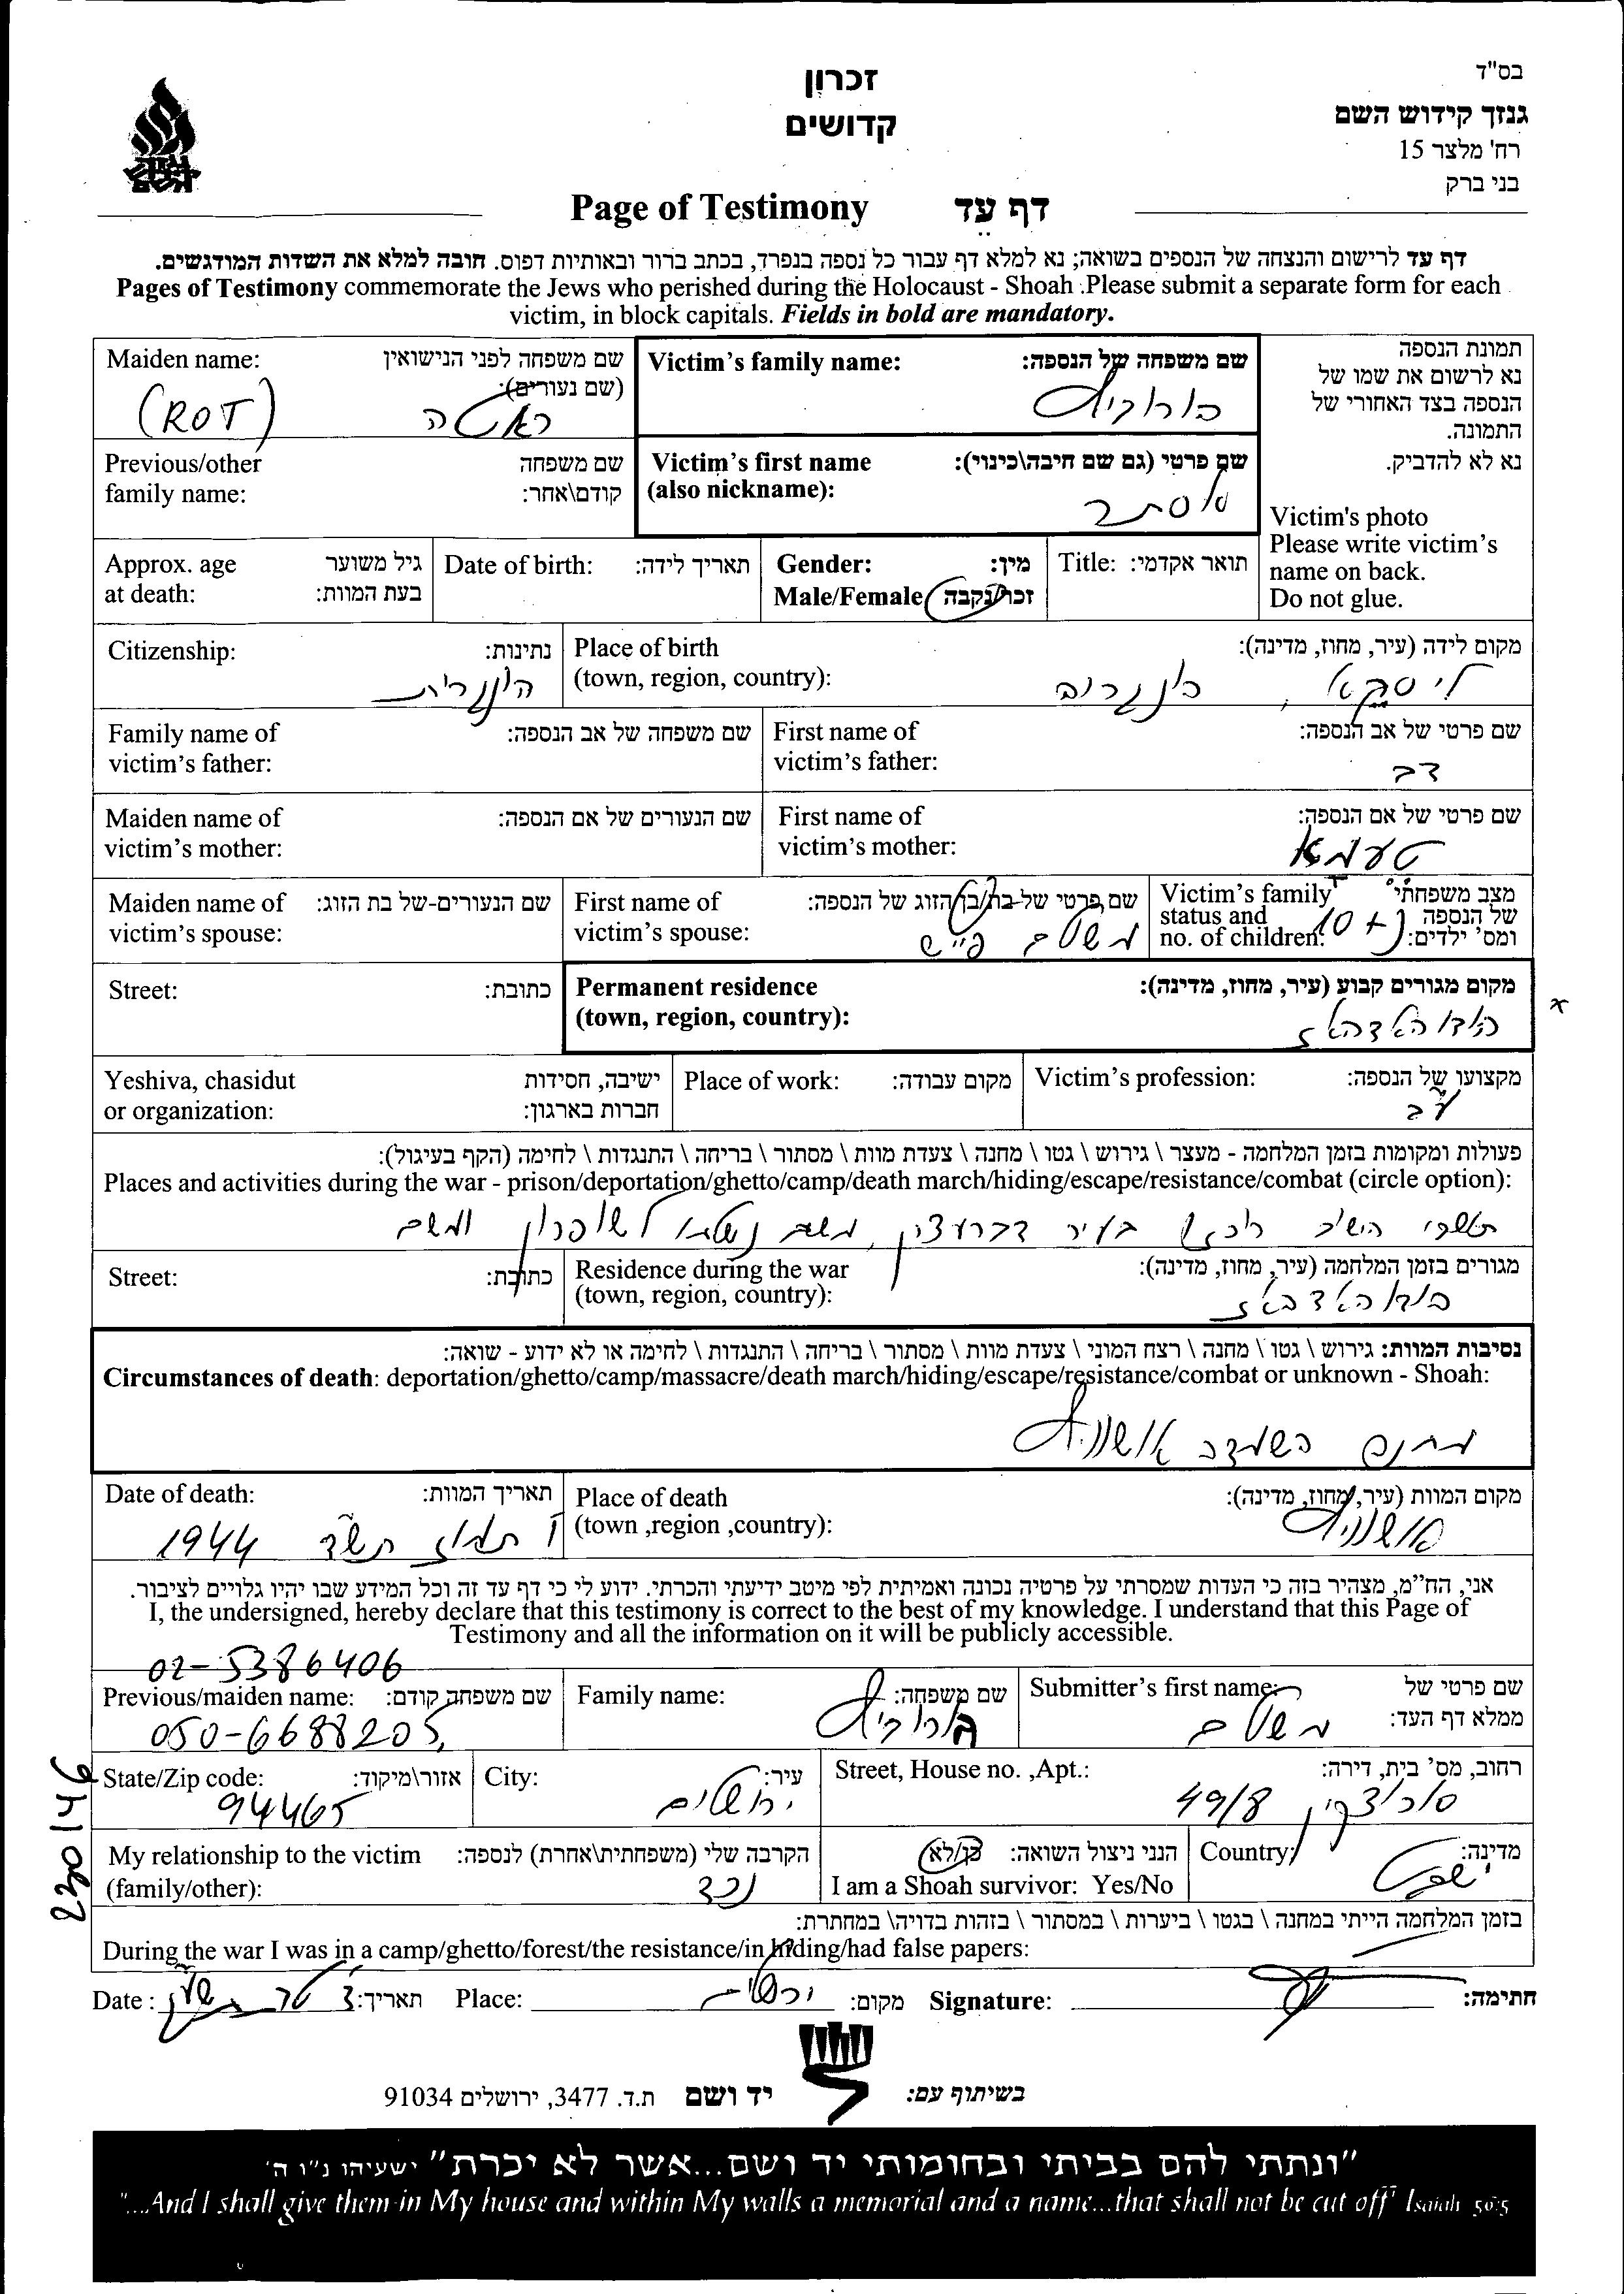 בס"ד
גנזך קידוש השם
רח' מלצר 15
בני ברק
זכרון
קדושים
Page of Testimony דף עֵד
דף עד לרישום והנצחה של הנספים בשואה; נא למלא דף עבור כל נספה בנפרד, בכתב ברור ובאותיות דפוס. חובה למלא את השדות המודגשים.
Pages of Testimony commemorate the Jews who perished during the Holocaust - Shoah .Please submit a separate form for each
victim, in block capitals. Fields in bold are mandatory.
תמונת הנספה
נא לרשום את שמו של
הנספה בצד האחורי של
התמונה.
נא לא להדביק.
Victim's photo
Please write victim's
name on back.
Do not glue.
Victim's family name: שם משפחה של הנספה:
Maiden name: שם משפחה לפני הנישואין
(שם נעורים):
(ROT)
Victim's first name שם פרטי (גם שם חיבה\כינוי):
(also nickname):
אסתר
Previous/other שם משפחה
family name: קודם\אחר:
Title: תואר אקדמי:
Gender: מין:
Male/Female זכר/נקבה
Date of birth: תאריך לידה:
Approx. age גיל משוער
at death: בעת המוות:
Place of birth מקום לידה (עיר, מחוז, מדינה):
(town, region, country): ליסקא, הונגריה
Citizenship: נתינות:
הונגרית
First name of שם פרטי של אב הנספה:
victim's father: דב
Family name of שם משפחה של אב הנספה:
victim's father:
First name of שם פרטי של אם הנספה:
victim's mother: טעמא
Maiden name of שם הנעורים של אם הנספה:
victim's mother:
Victim's family מצב משפחתי
status and של הנספה
no. of children: ומס' ילדים: נ + 10
First name of שם פרטי של-בת/בן הזוג של הנספה:
victim's spouse: משולם פייש
Maiden name of שם הנעורים-של בת הזוג:
victim's spouse:
Permanent residence מקום מגורים קבוע (עיר, מחוז, מדינה):
(town, region, country):
Street: כתובת:
Victim's profession: מקצועו של הנספה:
Place of work: מקום עבודה:
Yeshiva, chasidut ישיבה, חסידות
or organization: חברות בארגון:
פעולות ומקומות בזמן המלחמה - מעצר \ גירוש \ גטו \ מחנה \ צעדת מוות \ מסתור \ בריחה \ התנגדות \ לחימה (הקף בעיגול):
Places and activities during the war - prison/deportation/ghetto/camp/death march/hiding/escape/resistance/combat (circle option):
בעיר דברעצין, משם נשלחו ומשם
Residence during the war מגורים בזמן המלחמה (עיר, מחוז, מדינה):
(town, region, country):
Street: כתובת:
נסיבות המוות: גירוש \ גטו \ מחנה \ רצח המוני \ צעדת מוות \ מסתור \ בריחה \ התנגדות \ לחימה או לא ידוע - שואה:
Circumstances of death: deportation/ghetto/camp/massacre/death march/hiding/escape/resistance/combat or unknown - Shoah:
מחנה השמדה אושוויץ
Place of death מקום המוות (עיר, מחוז, מדינה):
(town ,region ,country): אושוויץ
Date of death: תאריך המוות:
תמוז תש"ד 1944
אני, הח"מ, מצהיר בזה כי העדות שמסרתי על פרטיה נכונה ואמיתית לפי מיטב ידיעתי והכרתי. ידוע לי כי דף עד זה וכל המידע שבו יהיו גלויים לציבור.
I, the undersigned, hereby declare that this testimony is correct to the best of my knowledge. I understand that this Page of
Testimony and all the information on it will be publicly accessible.
02-5386406
Submitter's first name: שם פרטי של
ממלא דף העד: משולם
Family name: שם משפחה:
Previous/maiden name: שם משפחה קודם:
050-6688205
Street, House no. ,Apt.: רחוב, מס' בית, דירה:
סורוצקין 49/8
City: עיר:
ירושלים
State/Zip code: אזור\מיקוד:
94465
220146
Country: מדינה:
ישראל
הנני ניצול השואה: כן/לא
I am a Shoah survivor: Yes/No
My relationship to the victim הקרבה שלי (משפחתית\אחרת) לנספה:
(family/other): נכד
בזמן המלחמה הייתי במחנה \ בגטו \ ביערות \ במסתור \ בזהות בדויה\ במחתרת:
During the war I was in a camp/ghetto/forest/the resistance/in hiding/had false papers:
Date : תאריך: Place: מקום: Signature: חתימה:
בשיתוף עם: יד ושם ת.ד. 3477, ירושלים 91034
"ונתתי להם בביתי ובחומותי יד ושם...אשר לא יכרת" ישעיהו נ"ו ה'
"...And I shall give them in My house and within My walls a memorial and a name...that shall not be cut off" Isaiah 56:5